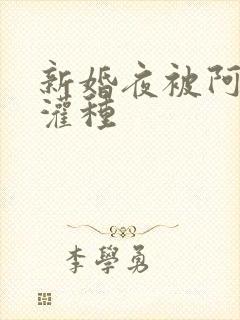 新婚夜被阿
灌種
李學勇